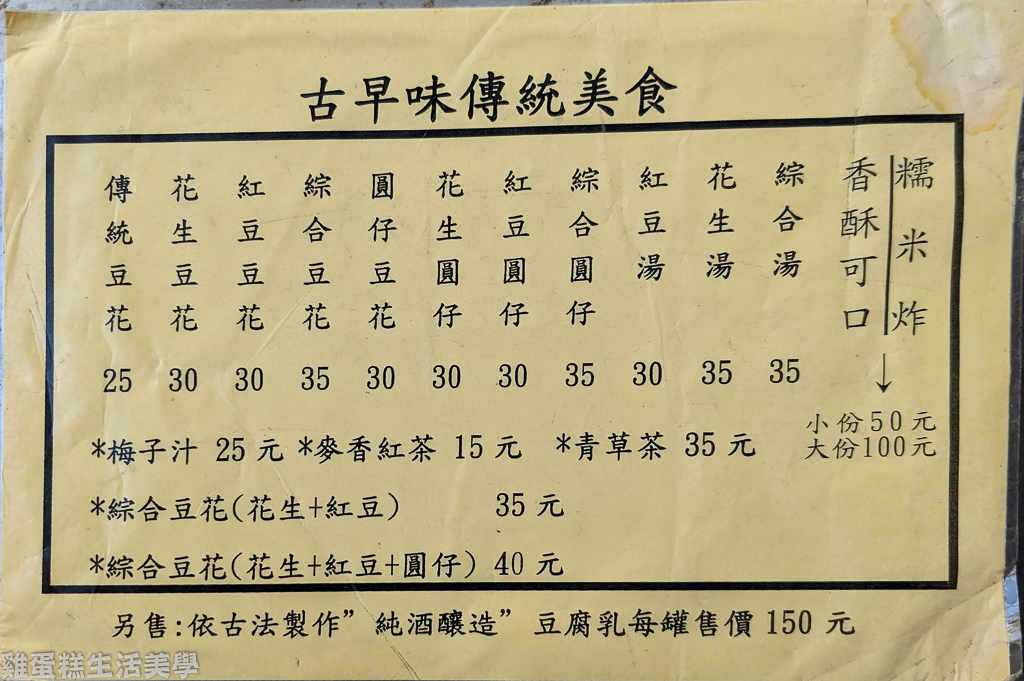 古早味傳統美食
糯米炸
香酥可口
小份50元
大份100元
綜合湯 35
花生湯 35
紅豆湯 30
綜合圓仔 35
紅豆圓仔 30
花生圓仔 30
圓仔豆花 30
綜合豆花 35
紅豆豆花 30
花生豆花 30
傳統豆花 25
*梅子汁 25 元 *麥香紅茶 15 元 *青草茶 35 元
*綜合豆花(花生+紅豆) 35 元
*綜合豆花(花生+紅豆+圓仔) 40 元
另售:依古法製作”純酒釀造”豆腐乳每罐售價 150 元
雞蛋糕生活美學